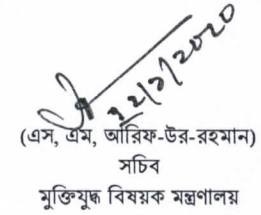 ১২/১/২০২০
(এস, এম, আরিফ-উর-রহমান)
সচিব
মুক্তিযুদ্ধ বিষয়ক মন্ত্রণালয়